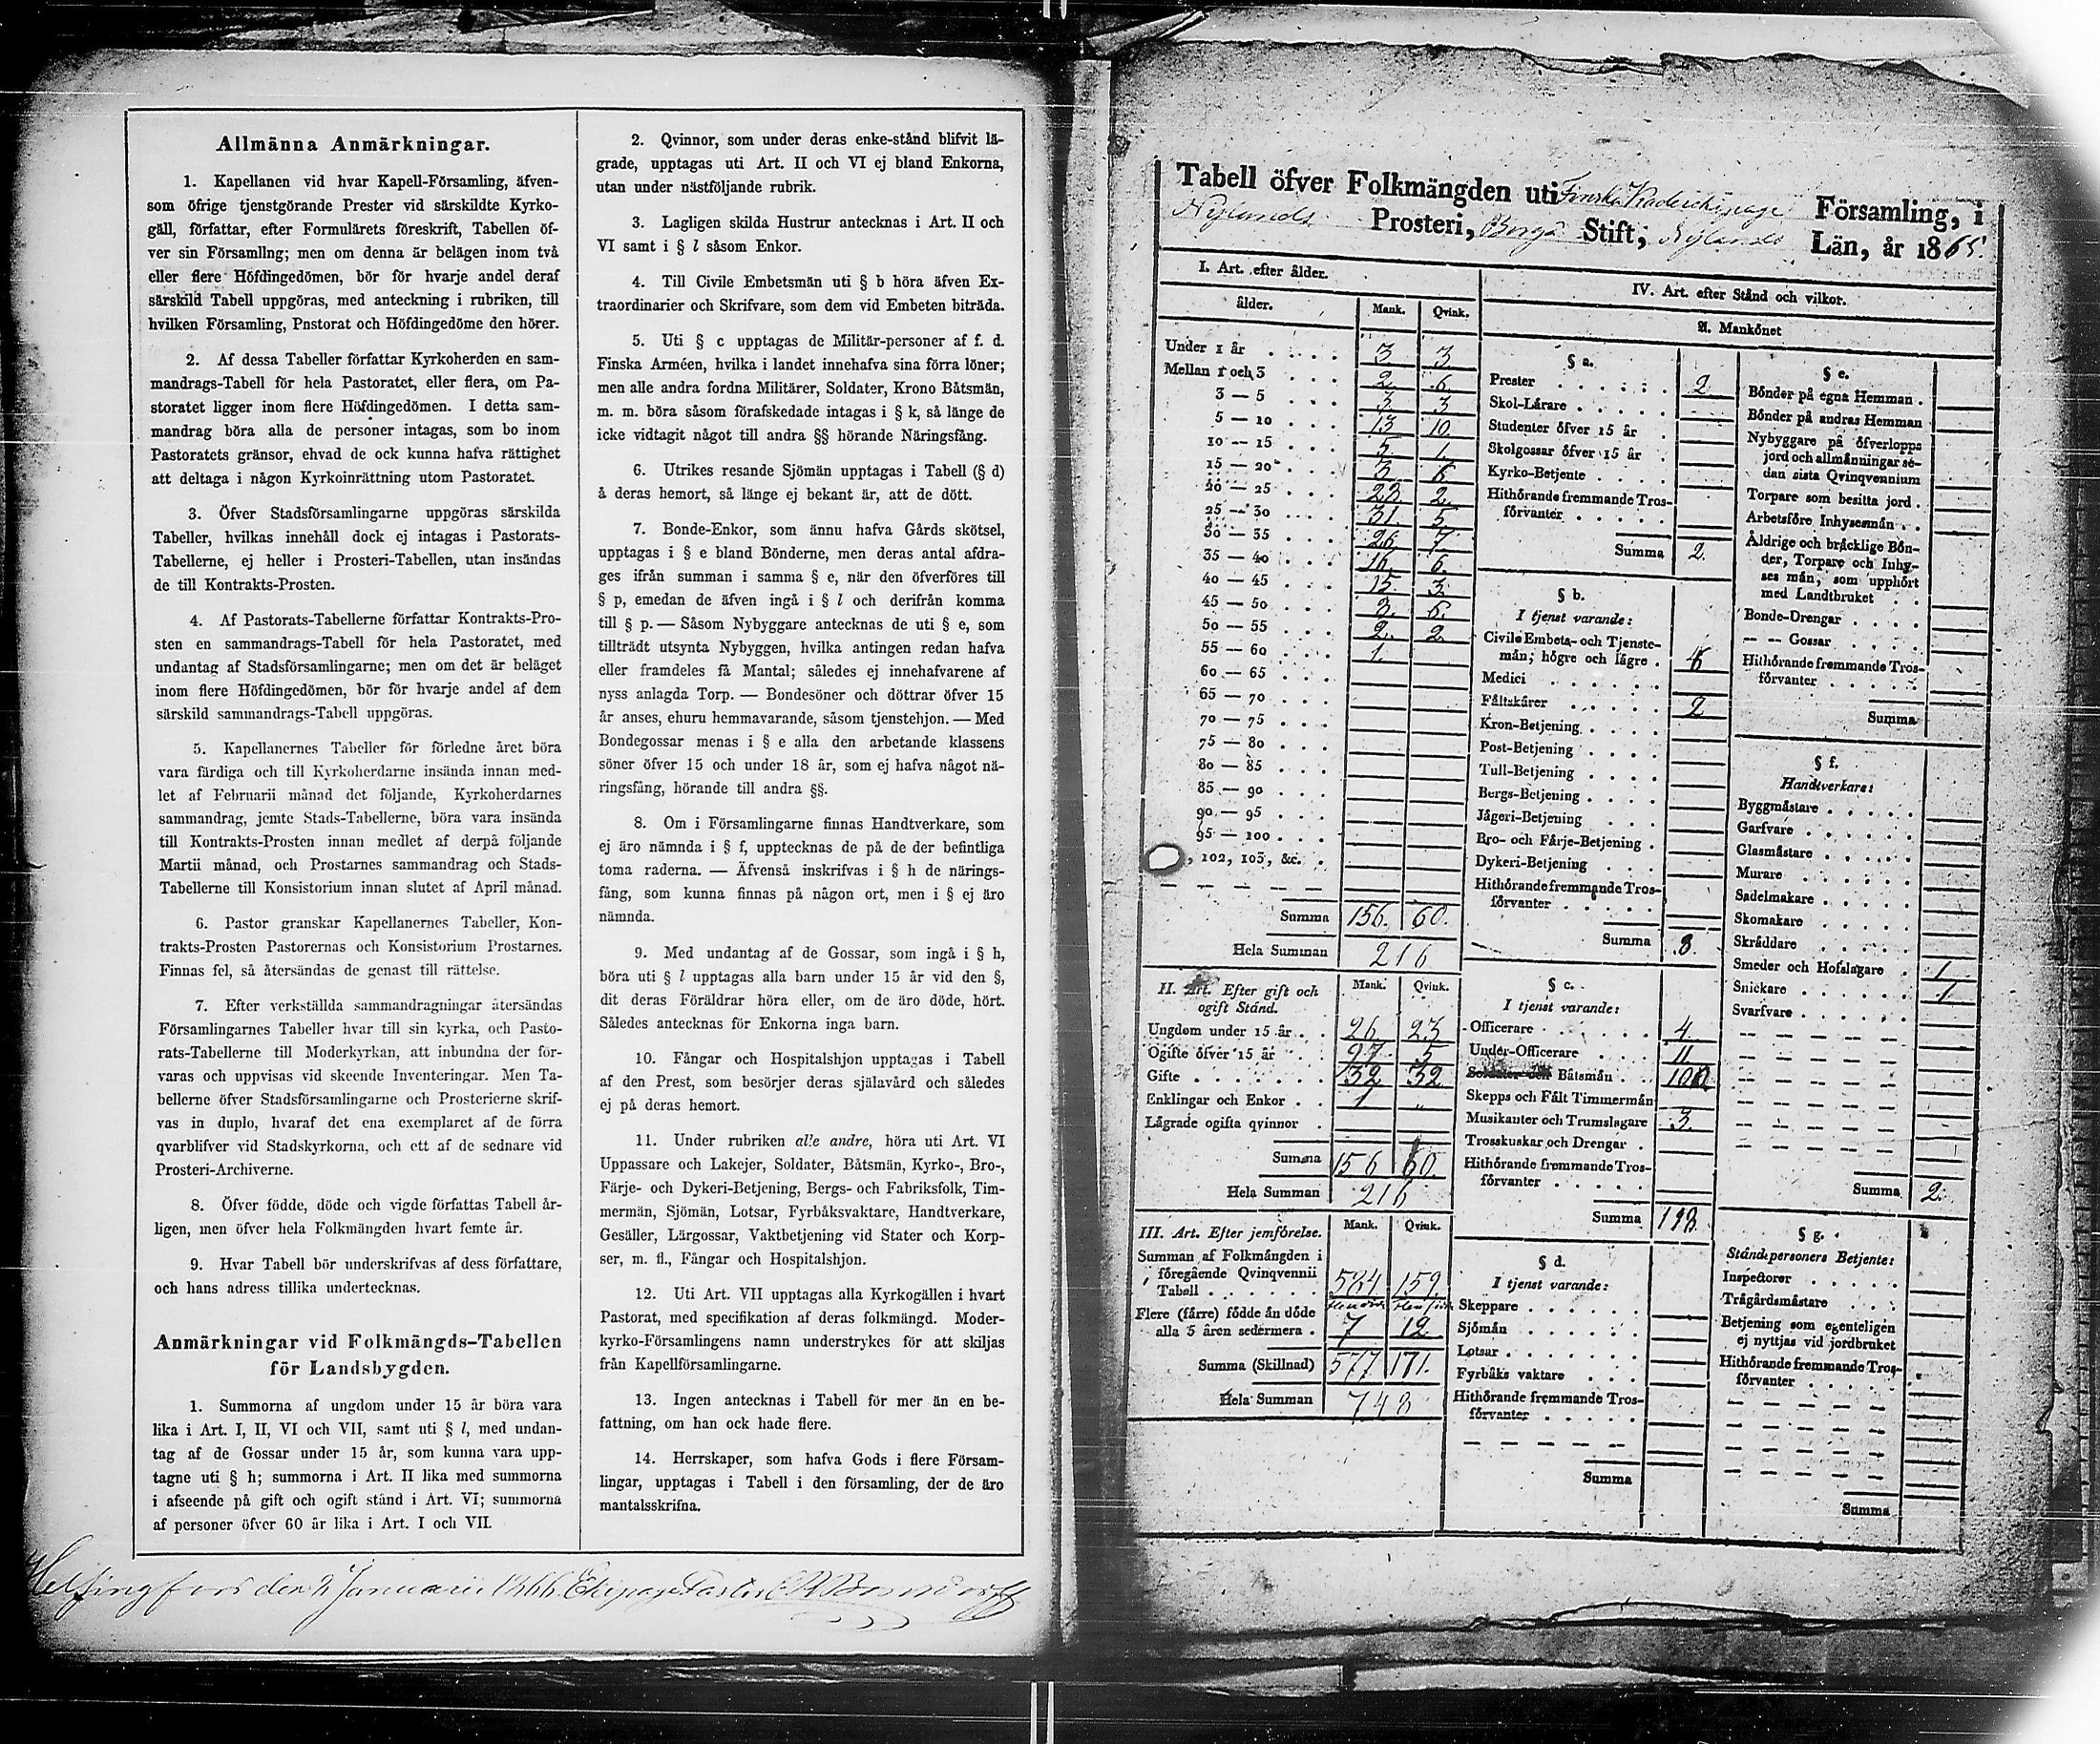 Allmänna Anmärkningar.
1. Kapellanen vid hvar Kapell-Församling, äfven-
som öfrige tjenstgörande Prester vid särskildte Kyrko-
gäll, författar, efter Formulärets föreskrift, Tabellen öf-
ver sin Församling; men om denna är belägen inom två
eller flere Höfdingedömen, bör för hvarje andel deraf
särskild Tabell uppgöras, med anteckning i rubriken, till
hvilken Församling, Pastorat och Höfdingedöme den hörer.
2. Af dessa Tabeller författar Kyrkoherden en sam-
mandrags-Tabell för hela Pastoratet, eller flera, om Pa-
storatet ligger inom flere Höfdingedömen. I detta sam-
mandrag böra alla de personer intagas, som bo inom
Pastoratets gränsor, ehvad de ock kunna hafva rättighet
att deltaga i någon Kyrkoinrättning utom Pastoratet.
3. Öfver Stadsförsamlingarne uppgöras särskilda
Tabeller, hvilkas innehåll dock ej intagas i Pastorats-
Tabellerne, ej heller i Prosteri-Tabellen, utan insändas
de till Kontrakts-Prosten.
4. Af Pastorats-Tabellerne författar Kontrakts-Pro-
sten en sammandrags-Tabell för hela Pastoratet, med
undantag af Stadsförsamlingarne; men om det är beläget
inom flere Höfdingedömen, bör för hvarje andel af dem
särskild sammandrags-Tabell uppgöras.
5. Kapellanernes Tabeller för förledne året böra
vara färdiga och till Kyrkoherdarne insända innan med-
let af Februarii månad det följande, Kyrkoherdarnes
sammandrag, jemte Stads-Tabellerne, böra vara insända
till Kontrakts-Prosten innan medlet af derpå följande
Martii månad, och Prostarnes sammandrag och Stads-
Tabellerne till Konsistorium innan slutet af April månad.
6. Pastor granskar Kapellanernes Tabeller, Kon-
trakts-Prosten Pastorernas och Konsistorium Prostarnes.
Finnas fel, så återsändas de genast till rättelse.
7. Efter verkställda sammandragningar återsändas
Församlingarnes Tabeller hvar till sin kyrka, och Pasto-
rats-Tabellerne till Moderkyrkan, att inbundna der för-
varas och uppvisas vid skeende Inventeringar. Men Ta-
bellerne öfver Stadsförsamlingarne och Prosterierne skrif-
vas in duplo, hvaraf det ena exemplaret af de förra
qvarblifver vid Stadskyrkorna, och ett af de sednare vid
Prosteri-Archiverne.
8. Öfver födde, döde och vigde författas Tabell år-
ligen, men öfver hela Folkmängden hvart femte år.
9. Hvar Tabell bör underskrifvas af dess författare,
och hans adress tillika undertecknas.
Anmärkningar vid Folkmängds-Tabellen
för Landsbygden.
1. Summorna af ungdom under 15 år böra vara
lika i Art. I, II, VI och VII, samt uti § l, med undan-
tag af de Gossar under 15 år, som kunna vara upp-
tagne uti § h; summorna i Art. II lika med summorna
i afseende på gift och ogift stånd i Art. VI; summorna
af personer öfver 60 år lika i Art. I och VII.
2. Qvinnor, som under deras enke-stånd blifvit lä-
grade, upptagas uti Art. II och VI ej bland Enkorna,
utan under nästföljande rubrik.
3. Lagligen skilda Hustrur antecknas i Art. II och
VI samt i § l såsom Enkor.
4. Till Civile Embetsmän uti § b höra äfven Ex-
traordinarier och Skrifvare, som dem vid Embeten biträda.
5. Uti § c upptagas de Militär-personer af f. d.
Finska Arméen, hvilka i landet innehafva sina förra löner;
men alle andra fordna Militärer, Soldater, Krono Båtsmän,
m. m. böra såsom förafskedade intagas i § k, så länge de
icke vidtagit något till andra §§ hörande Näringsfång.
6. Utrikes resande Sjömän upptagas i Tabell (§ d)
å deras hemort, så länge ej bekant är, att de dött.
7. Bonde-Enkor, som ännu hafva Gårds skötsel,
upptagas i § e bland Bönderne, men deras antal afdra-
ges ifrån summan i samma § e, när den öfverföres till
§ p, emedan de äfven ingå i § l och derifrån komma
till § p. — Såsom Nybyggare antecknas de uti § e, som
tillträdt utsynta Nybyggen, hvilka antingen redan hafva
eller framdeles få Mantal; således ej innehafvarene af
nyss anlagda Torp. — Bondesöner och döttrar öfver 15
år anses, ehuru hemmavarande, såsom tjenstehjon. — Med
Bondegossar menas i § e alla den arbetande klassens
söner öfver 15 och under 18 år, som ej hafva något nä-
ringsfång, hörande till andra §§.
8. Om i Församlingarne finnas Handtverkare, som
ej äro nämnda i § f, upptecknas de på de der befintliga
toma raderna. — Äfvenså inskrifvas i § h de närings-
fång, som kunna finnas på någon ort, men i § ej äro
nämnda.
9. Med undantag af de Gossar, som ingå i § h,
böra uti § l upptagas alla barn under 15 år vid den §,
dit deras Föräldrar höra eller, om de äro döde, hört.
Således antecknas för Enkorna inga barn.
10. Fångar och Hospitalshjon upptagas i Tabell
af den Prest, som besörjer deras själavård och således
ej på deras hemort.
11. Under rubriken alle andre, höra uti Art. VI
Uppassare och Lakejer, Soldater, Båtsmän, Kyrko-, Bro-,
Färje- och Dykeri-Betjening, Bergs- och Fabriksfolk, Tim-
mermän, Sjömän, Lotsar, Fyrbåksvaktare, Handtverkare,
Gesäller, Lärgossar, Vaktbetjening vid Stater och Korp-
ser, m. fl., Fångar och Hospitalshjon.
12. Uti Art. VII upptagas alla Kyrkogällen i hvart
Pastorat, med specifikation af deras folkmängd. Moder-
kyrko-Församlingens namn understrykes för att skiljas
från Kapellförsamlingarne.
13. Ingen antecknas i Tabell för mer än en be-
fattning, om han ock hade flere.
14. Herrskaper, som hafva Gods i flere Försam-
lingar, upptagas i Tabell i den församling, der de äro
mantalsskrifna.
Helsingfors den 2 Januarii 1866. Ekipage Pastor
Tabell öfver Folkmängden uti Finska Församling, i
Nylands Prosteri, Borgå Stift, Nylands Län, år 1865.
I. Art. efter ålder.
ålder. Mank. Qvink.
Under 1 år 3 3
Mellan 1 och 3 2 6
3 — 5 3 3
5 — 10 13 10
10 — 15 5 1
15 — 20 3 6
20 — 25 2
25 — 30 31. 5
30 — 35 26 7
35 — 40 16 6
40 — 45 15 3
45 — 50 3. 6.
50 — 55 2. 2
55 — 60 1.
60 — 65
65 — 70
70 — 75
75 — 80
80 — 85
85 — 90
90 — 95
95 — 100
, 102, 103, &c.
Summa 156. 60.
Hela Summan 216
II. Art. Efter gift och Mank. Qvink.
ogift Stånd.
Ungdom under 15 år 26 23
Ogifte öfver 15 år 97 5
Gifte 32 32
Enklingar och Enkor 1 „
Lägrade ogifta qvinnor
Summa 156 60
Hela Summan 216
III. Art. Efter jemförelse. Mank. Qvink.
Summan af Folkmängden i
föregående Qvinqvennii
Tabell 584 159.
Flere (färre) födde än döde
alla 5 åren sedermera 7 12
Summa (Skillnad) 577 171.
Hela Summan 748
IV. Art. efter Stånd och vilkor.
A. Mankönet
§ a.
Prester 2
Skol-Lärare
Studenter öfver 15 år
Skolgossar öfver 15 år
Kyrko-Betjente
Hithörande fremmande Tros-
förvanter
Summa 2.
§ b.
I tjenst varande:
Civile Embets- och Tjenste-
män; högre och lägre
Medici
Fältskärer 2
Kron-Betjening
Post-Betjening
Tull-Betjening
Bergs-Betjening
Jägeri-Betjening
Bro- och Färje-Betjening
Dykeri-Betjening
Hithörande fremmande Tros-
förvanter
Summa 8.
§ c.
I tjenst varande:
Officerare 4.
Under-Officerare 11
Båtsmän 100
Skepps och Fält Timmermän
Musikanter och Trumslagare 3.
Trosskuskar och Drengar
Hithörande fremmande Tros-
förvanter
Summa 118
§ d.
I tjenst varande:
Skeppare
Sjömän
Lotsar
Fyrbåks vaktare
Hithörande fremmande Tros-
förvanter
Summa
§ e.
Bönder på egna Hemman
Bönder på andras Hemman
Nybyggare på öfverlopps
jord och allmänningar se-
dan sista Qvinqvennium
Torpare som besitta jord
Arbetsföre Inhysesmän
Åldrige och bräcklige Bön-
der, Torpare och Inhy-
ses män, som upphört
med Landtbruket
Bonde-Drengar
— — Gossar
Hithörande fremmande Tros-
förvanter
Summa
§ f.
Handtverkare:
Byggmästare
Garfvare
Glasmästare
Murare
Sadelmakare
Skomakare
Skräddare
Smeder och Hofslagare 1
Snickare 1
Svarfvare
Summa 2.
§ g.
Ståndspersoners Betjente:
Inspectorer
Trägårdsmästare
Betjening som egenteligen
ej nyttjas vid jordbruket
Hithörande fremmande Tros-
förvanter
Summa